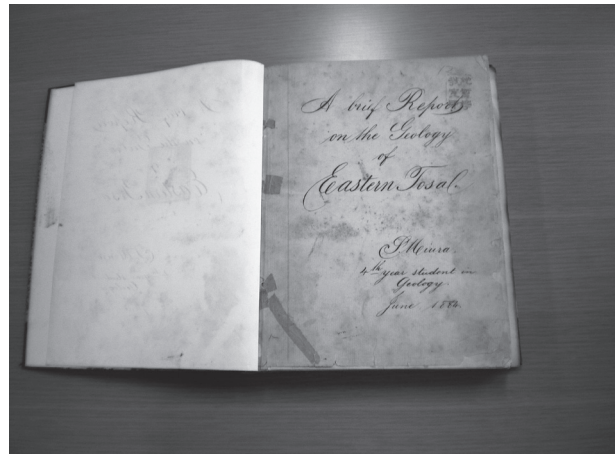 A brief Report
on the Geology
of
Eastern Tosa.
S. Miura.
4th year student in
Geology.
June 1884